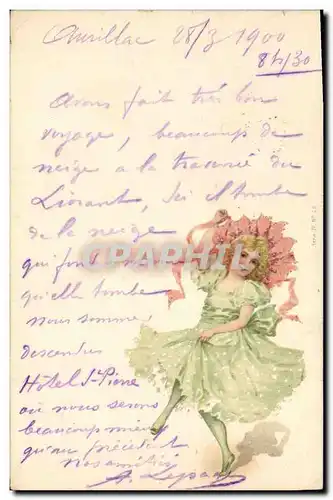 Aurillac 28/3 1900
8h/30
Avons fait très bon
voyage, beaucoup de
neige a la traversée du
Lioran, Ici il tombe
de la neige
qui fond
qu'elle tombe
nous sommes
descendus
Hôtel St-Pierre
où nous serons
beaucoup mieux
qu'au précédent
nos amitiés